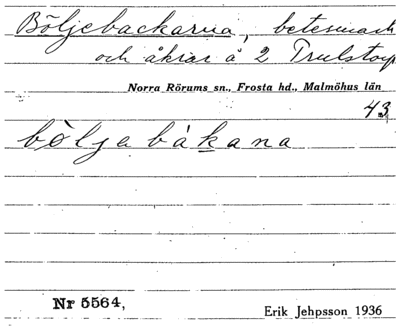 Böljebackarna, betesmark
och åkrar å 2 Trulstorp
Norra Rörums sn., Frosta hd., Malmöhus län
43
bòljabàkana
Nr 5564,
Erik Jehpsson 1936